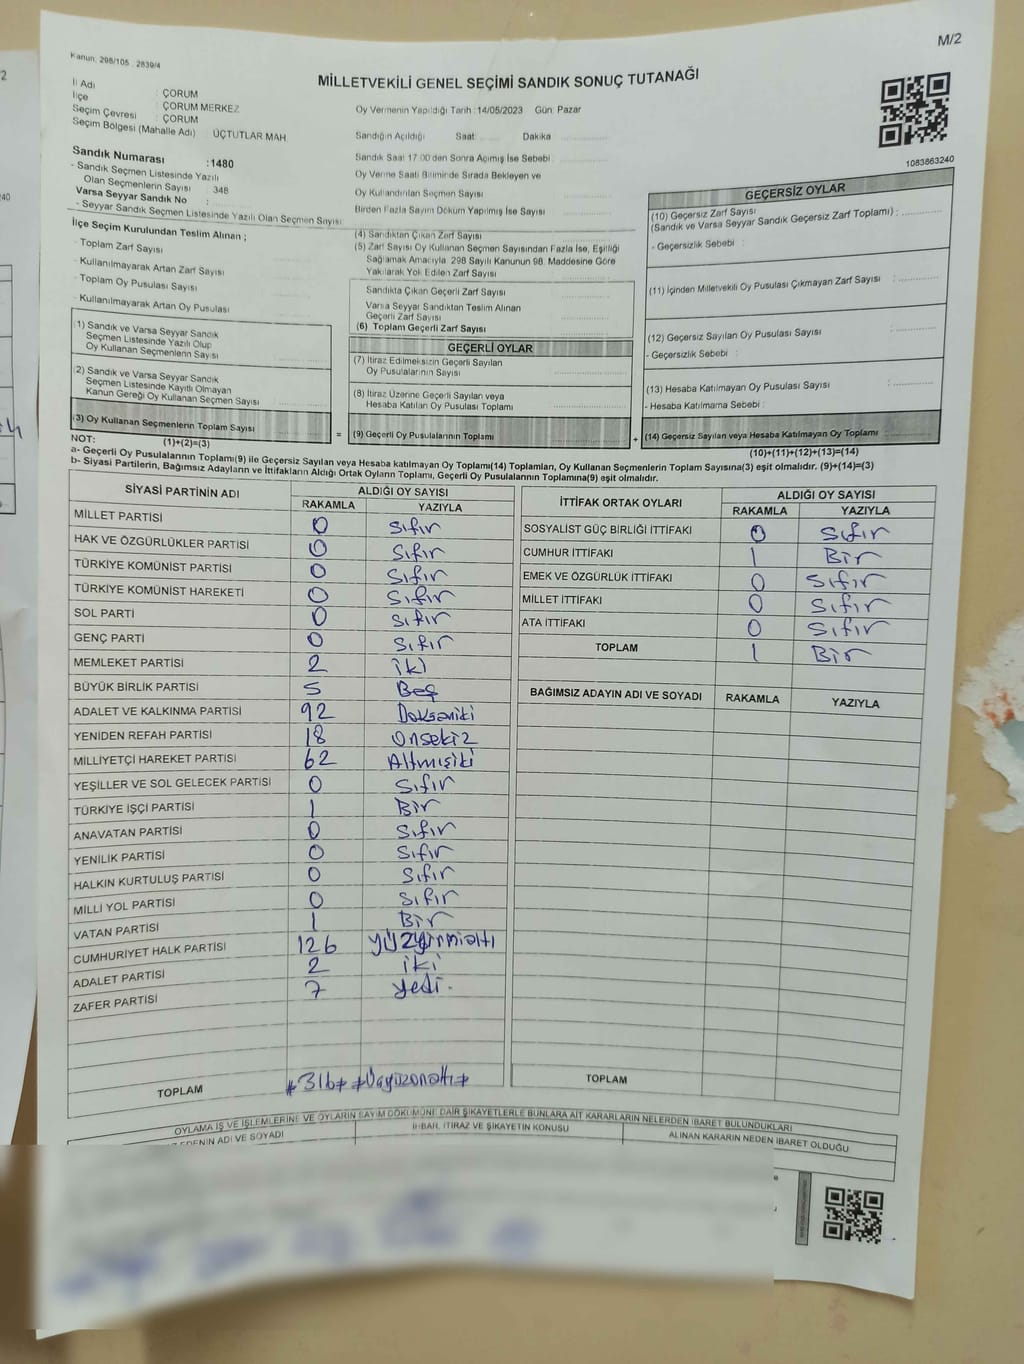 M/2
Kanun: 298/105 . 2839/4
MİLLETVEKİLİ GENEL SEÇİMİ SANDIK SONUÇ TUTANAĞI
İl Adı : ÇORUM
İlçe : ÇORUM MERKEZ
Seçim Çevresi : ÇORUM
Seçim Bölgesi (Mahalle Adı) : ÜÇTUTLAR MAH
Sandık Numarası :1480
- Sandık Seçmen Listesinde Yazılı
Olan Seçmenlerin Sayısı : 348
Varsa Seyyar Sandık No :
- Seyyar Sandık Seçmen Listesinde Yazılı Olan Seçmen Sayısı
İlçe Seçim Kurulundan Teslim Alınan ;
- Toplam Zarf Sayısı
- Kullanılmayarak Artan Zarf Sayısı
- Toplam Oy Pusulası Sayısı
- Kullanılmayarak Artan Oy Pusulası
(1) Sandık ve Varsa Seyyar Sandık
Seçmen Listesinde Yazılı Olup
Oy Kullanan Seçmenlerin Sayısı
(2) Sandık ve Varsa Seyyar Sandık
Seçmen Listesinde Kayıtlı Olmayan
Kanun Gereği Oy Kullanan Seçmen Sayısı
(3) Oy Kullanan Seçmenlerin Toplam Sayısı
(1)+(2)=(3)
Oy Vermenin Yapıldığı Tarih :14/05/2023 Gün: Pazar
Sandığın Açıldığı Saat: Dakika
Sandık Saat 17:00'den Sonra Açılmış İse Sebebi :
Oy Verme Saati Bitiminde Sırada Bekleyen ve
Oy Kullandırılan Seçmen Sayısı
Birden Fazla Sayım Döküm Yapılmış İse Sayısı
(4) Sandıktan Çıkan Zarf Sayısı
(5) Zarf Sayısı Oy Kullanan Seçmen Sayısından Fazla İse, Eşitliği
Sağlamak Amacıyla 298 Sayılı Kanunun 98. Maddesine Göre
Yakılarak Yok Edilen Zarf Sayısı
Sandıkta Çıkan Geçerli Zarf Sayısı
Varsa Seyyar Sandıktan Teslim Alınan
Geçerli Zarf Sayısı
(6) Toplam Geçerli Zarf Sayısı
=
GEÇERLİ OYLAR
(7) İtiraz Edilmeksizin Geçerli Sayılan
Oy Pusulalarının Sayısı
(8) İtiraz Üzerine Geçerli Sayılan veya
Hesaba Katılan Oy Pusulası Toplamı
(9) Geçerli Oy Pusulalarının Toplamı
+
1083863240
GEÇERSİZ OYLAR
(10) Geçersiz Zarf Sayısı
(Sandık ve Varsa Seyyar Sandık Geçersiz Zarf Toplamı) :
- Geçersizlik Sebebi :
(11) İçinden Milletvekili Oy Pusulası Çıkmayan Zarf Sayısı
(12) Geçersiz Sayılan Oy Pusulası Sayısı
- Geçersizlik Sebebi :
(13) Hesaba Katılmayan Oy Pusulası Sayısı
- Hesaba Katılmama Sebebi :
(14) Geçersiz Sayılan veya Hesaba Katılmayan Oy Toplamı
(10)+(11)+(12)+(13)=(14)
NOT:
a- Geçerli Oy Pusulalarının Toplamı(9) ile Geçersiz Sayılan veya Hesaba katılmayan Oy Toplamı(14) Toplamları, Oy Kullanan Seçmenlerin Toplam Sayısına(3) eşit olmalıdır. (9)+(14)=(3)
b- Siyasi Partilerin, Bağımsız Adayların ve İttifakların Aldığı Ortak Oyların Toplamı, Geçerli Oy Pusulalarının Toplamına(9) eşit olmalıdır.
SİYASİ PARTİNİN ADI ALDIĞI OY SAYISI
RAKAMLA YAZIYLA
MİLLET PARTİSİ 0 Sıfır
HAK VE ÖZGÜRLÜKLER PARTİSİ 0 Sıfır
TÜRKİYE KOMÜNİST PARTİSİ 0 Sıfır
TÜRKİYE KOMÜNİST HAREKETİ 0 Sıfır
SOL PARTİ 0 Sıfır
GENÇ PARTİ 0 Sıfır
MEMLEKET PARTİSİ 2 iki
BÜYÜK BİRLİK PARTİSİ 5 Beş
ADALET VE KALKINMA PARTİSİ 92 Doksaniki
YENİDEN REFAH PARTİSİ 18 Onsekiz
MİLLİYETÇİ HAREKET PARTİSİ 62 Altmışiki
YEŞİLLER VE SOL GELECEK PARTİSİ 0 Sıfır
TÜRKİYE İŞÇİ PARTİSİ 1 Bir
ANAVATAN PARTİSİ 0 Sıfır
YENİLİK PARTİSİ 0 Sıfır
HALKIN KURTULUŞ PARTİSİ 0 Sıfır
MİLLİ YOL PARTİSİ 0 Sıfır
VATAN PARTİSİ 1 Bir
CUMHURİYET HALK PARTİSİ 126 yüzyirmialtı
ADALET PARTİSİ 2 iki
ZAFER PARTİSİ 7 yedi.
TOPLAM #316# #Üçyüzonaltı#
İTTİFAK ORTAK OYLARI ALDIĞI OY SAYISI
RAKAMLA YAZIYLA
SOSYALİST GÜÇ BİRLİĞİ İTTİFAKI 0 Sıfır
CUMHUR İTTİFAKI 1 Bir
EMEK VE ÖZGÜRLÜK İTTİFAKI 0 Sıfır
MİLLET İTTİFAKI 0 Sıfır
ATA İTTİFAKI 0 Sıfır
TOPLAM 1 Bir
BAĞIMSIZ ADAYIN ADI VE SOYADI RAKAMLA YAZIYLA
TOPLAM
OYLAMA İŞ VE İŞLEMLERİNE VE OYLARIN SAYIM DÖKÜMÜNE DAİR ŞİKAYETLERLE BUNLARA AİT KARARLARIN NELERDEN İBARET BULUNDUKLARI
EDENİN ADI VE SOYADI İHBAR, İTİRAZ VE ŞİKAYETİN KONUSU ALINAN KARARIN NEDEN İBARET OLDUĞU